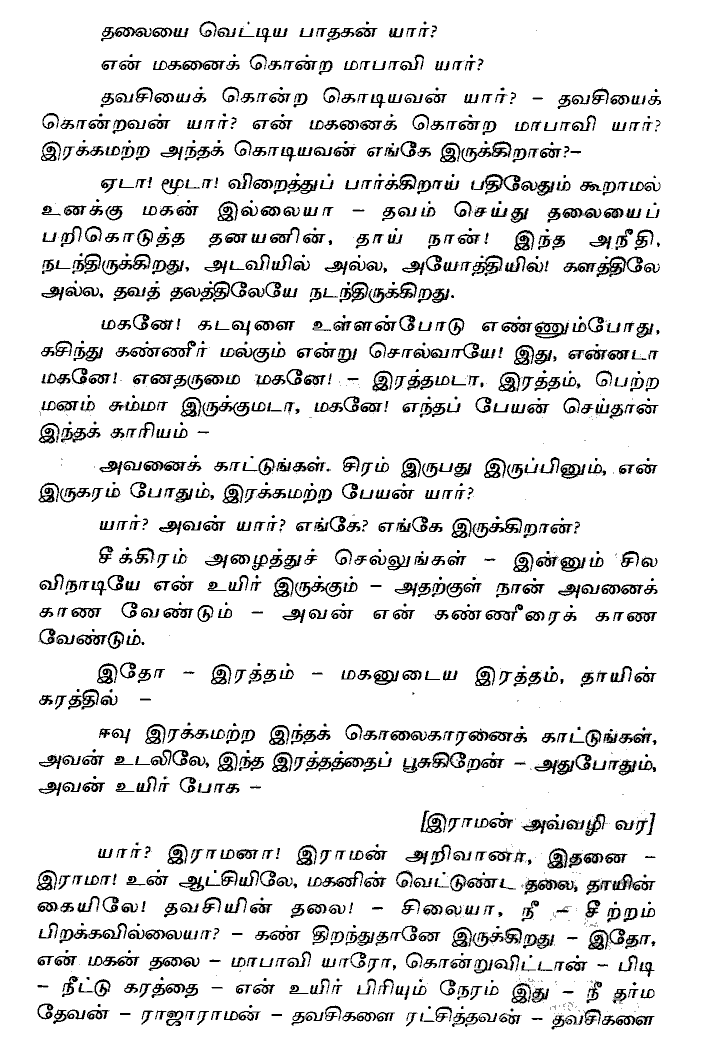 தலையை வெட்டிய பாதகன் யார்?
என் மகனைக் கொன்ற மாபாவி யார்?
தவசியைக் கொன்ற கொடியவன் யார்? – தவசியைக்
கொன்றவன் யார்? என் மகனைக் கொன்ற மாபாவி யார்?
இரக்கமற்ற அந்தக் கொடியவன் எங்கே இருக்கிறான்?–
ஏடா! மூடா! விறைத்துப் பார்க்கிறாய் பதிலேதும் கூறாமல்
உனக்கு மகன் இல்லையா – தவம் செய்து தலையைப்
பறிகொடுத்த தனயனின், தாய் நான்! இந்த அநீதி,
நடந்திருக்கிறது, அடவியில் அல்ல, அயோத்தியில்! களத்திலே
அல்ல, தவத் தலத்திலேயே நடந்திருக்கிறது.
மகனே! கடவுளை உள்ளன்போடு எண்ணும்போது,
கசிந்து கண்ணீர் மல்கும் என்று சொல்வாயே! இது, என்னடா
மகனே! எனதருமை மகனே! – இரத்தமடா, இரத்தம், பெற்ற
மனம் சும்மா இருக்குமடா, மகனே! எந்தப் பேயன் செய்தான்
இந்தக் காரியம் –
அவனைக் காட்டுங்கள். சிரம் இருபது இருப்பினும், என்
இருகரம் போதும், இரக்கமற்ற பேயன் யார்?
யார்? அவன் யார்? எங்கே? எங்கே இருக்கிறான்?
சீக்கிரம் அழைத்துச் செல்லுங்கள் – இன்னும் சில
விநாடியே என் உயிர் இருக்கும் – அதற்குள் நான் அவனைக்
காண வேண்டும் – அவன் என் கண்ணீரைக் காண
வேண்டும்.
இதோ – இரத்தம் – மகனுடைய இரத்தம், தாயின்
கரத்தில் –
ஈவு இரக்கமற்ற இந்தக் கொலைகாரனைக் காட்டுங்கள்,
அவன் உடலிலே, இந்த இரத்தத்தைப் பூசுகிறேன் – அதுபோதும்,
அவன் உயிர் போக –
[இராமன் அவ்வழி வர]
யார்? இராமனா! இராமன் அறிவானா, இதனை –
இராமா! உன் ஆட்சியிலே, மகனின் வெட்டுண்ட தலை, தாயின்
கையிலே! தவசியின் தலை! – சிலையா, நீ – சீற்றம்
பிறக்கவில்லையா? – கண் திறந்துதானே இருக்கிறது – இதோ,
என் மகன் தலை – மாபாவி யாரோ, கொன்றுவிட்டான் – பிடி
– நீட்டு கரத்தை – என் உயிர் பிரியும் நேரம் இது – நீ தர்ம
தேவன் – ராஜாராமன் – தவசிகளை ரட்சித்தவன் – தவசிகளை